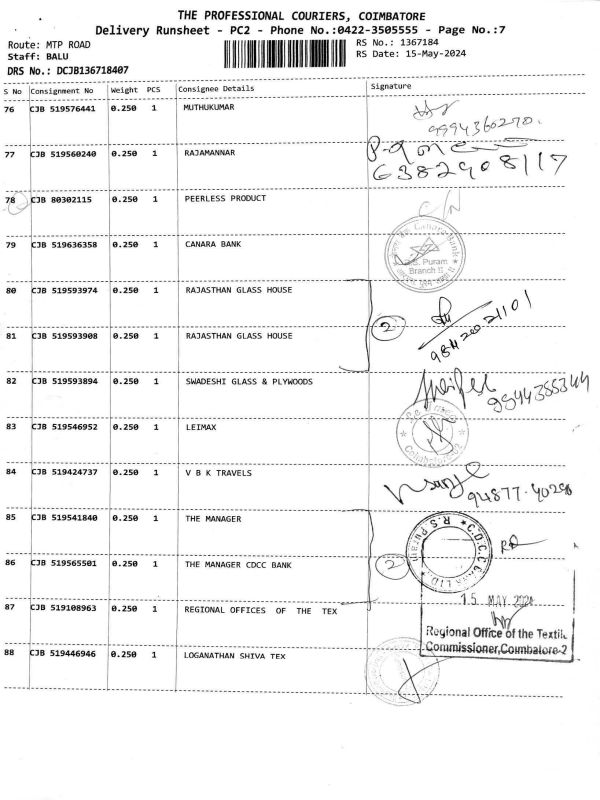 THE PROFESSIONAL COURIERS, COIMBATORE
Delivery Runsheet - PC2 - Phone No.:0422-3505555 - Page No.:7
Route: MTP ROAD
RS No.: 1367184
Staff: BALU
RS Date: 15-May-2024
DRS No.: DCJB136718407
S No Consignment No Weight PCS Consignee Details Signature
76 CJB 519576441 0.250 1 MUTHUKUMAR
9994360270.
77 CJB 519560240 0.250 1 RAJAMANNAR
6382908117
78 CJB 80302115 0.250 1 PEERLESS PRODUCT
79 CJB 519636358 0.250 1 CANARA BANK
Canara Bank
R.S. Puram
Branch II
80 CJB 519593974 0.250 1 RAJASTHAN GLASS HOUSE
2
81 CJB 519593908 0.250 1 RAJASTHAN GLASS HOUSE
82 CJB 519593894 0.250 1 SWADESHI GLASS & PLYWOODS
83 CJB 519546952 0.250 1 LEIMAX
84 CJB 519424737 0.250 1 V B K TRAVELS
94877-40290
85 CJB 519541840 0.250 1 THE MANAGER
86 CJB 519565501 0.250 1 THE MANAGER CDCC BANK
2
87 CJB 519108963 0.250 1 REGIONAL OFFICES OF THE TEX
15 MAY 2024
Regional Office of the Textile
Commissioner, Coimbatore-2
88 CJB 519446946 0.250 1 LOGANATHAN SHIVA TEX